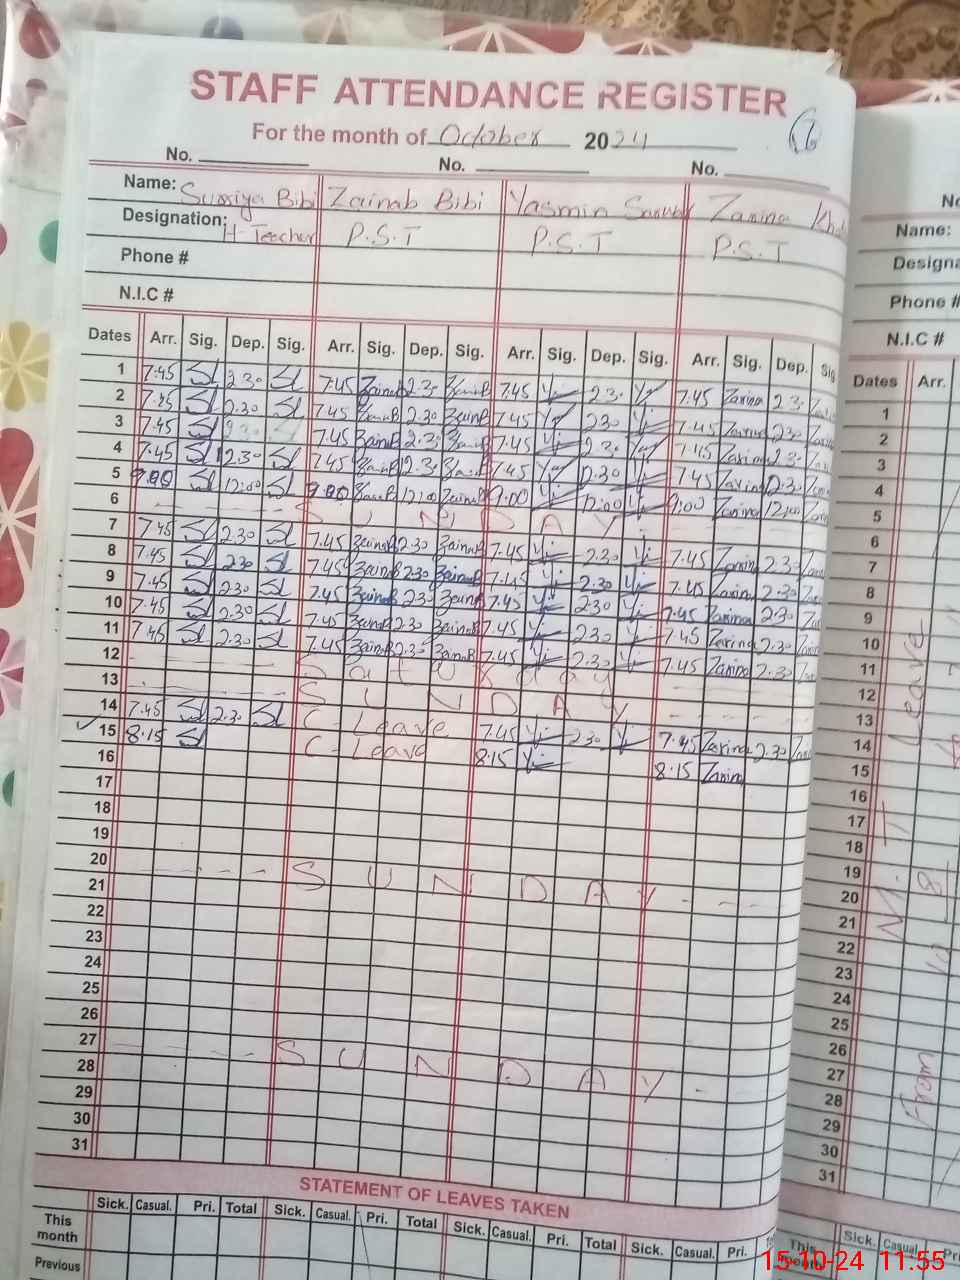 STAFF ATTENDANCE REGISTER
For the month of October 2024
No. No. No.
Name: Sumiya Bibi Zainab Bibi Yasmin Zarina
Designation: H-Teacher P.S.T P.S.T P.S.T
Phone #
N.I.C #
Dates Arr. Sig. Dep. Sig. Arr. Sig. Dep. Sig. Arr. Sig. Dep. Sig. Arr. Sig. Dep. Sig
1 7:45 2:30 7:45 Zainab 2:30 Zainab 7:45 2:30 7:45 Zarina 2:30
2 7:45 2:30 7:45 Zainab 2:30 Zainab 7:45 2:30 7:45 Zarina 2:30
3 7:45 2:30 7:45 Zainab 2:30 Zainab 7:45 2:30 7:45 Zarina 2:30
4 7:45 2:30 7:45 Zainab 2:30 Zainab 7:45 2:30 7:45 Zarina 2:30
5 9:00 12:00 9:00 Zainab 12:00 Zainab 9:00 12:00 9:00 Zarina 12:00
6 SUNDAY
7 7:45 2:30 7:45 Zainab 2:30 Zainab 7:45 2:30 7:45 Zarina 2:30
8 7:45 2:30 7:45 Zainab 2:30 Zainab 7:45 2:30 7:45 Zarina 2:30
9 7:45 2:30 7:45 Zainab 2:30 Zainab 7:45 2:30 7:45 Zarina 2:30
10 7:45 2:30 7:45 Zainab 2:30 Zainab 7:45 2:30 7:45 Zarina 2:30
11 7:45 2:30 7:45 Zainab 2:30 Zainab 7:45 2:30 7:45 Zarina 2:30
12 Saturday
13 SUNDAY
14 7:45 2:30 C-Leave 7:45 2:30 7:45 Zarina 2:30
15 8:15 C-Leave 8:15 8:15 Zarina
16
17
18
19
20 SUNDAY
21
22
23
24
25
26
27 SUNDAY
28
29
30
31
STATEMENT OF LEAVES TAKEN
Sick. Casual. Pri. Total Sick. Casual. Pri. Total Sick. Casual. Pri. Total Sick. Casual. Pri.
This month
Previous
Name:
Phone #
N.I.C #
Dates Arr.
1
2
3
4
5
6
7
8
9
10
11
12
13
14
15
16
17
18
19
20
21
22
23
24
25
26
27
28
29
30
31
Leave
From
Sick. Casual
This
15-10-24 11:55